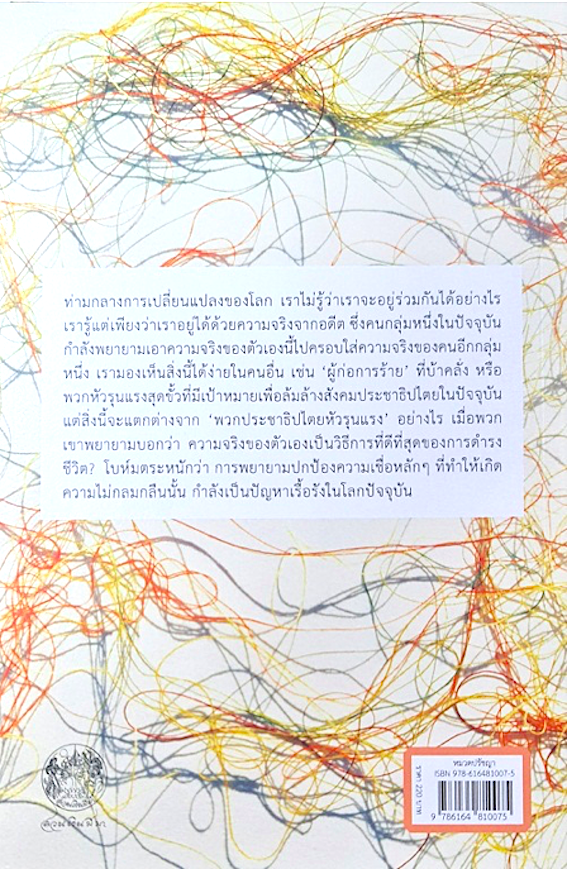 ท่ามกลางการเปลี่ยนแปลงของโลก เราไม่รู้ว่าเราจะอยู่ร่วมกันได้อย่างไร
เรารู้แต่เพียงว่าเราอยู่ได้ด้วยความจริงจากอดีต ซึ่งคนกลุ่มหนึ่งในปัจจุบัน
กำลังพยายามเอาความจริงของตัวเองนี้ไปครอบใส่ความจริงของคนอีกกลุ่ม
หนึ่ง เรามองเห็นสิ่งนี้ได้ง่ายในคนอื่น เช่น ‘ผู้ก่อการร้าย’ ที่บ้าคลั่ง หรือ
พวกหัวรุนแรงสุดขั้วที่มีเป้าหมายเพื่อล้มล้างสังคมประชาธิปไตยในปัจจุบัน
แต่สิ่งนี้จะแตกต่างจาก ‘พวกประชาธิปไตยหัวรุนแรง’ อย่างไร เมื่อพวก
เขาพยายามบอกว่า ความจริงของตัวเองเป็นวิธีการที่ดีที่สุดของการดำรง
ชีวิต? โบห์มตระหนักว่า การพยายามปกป้องความเชื่อหลักๆ ที่ทำให้เกิด
ความไม่กลมกลืนนั้น กำลังเป็นปัญหาเรื้อรังในโลกปัจจุบัน
สวนเงินมีมา
หมวดปรัชญา
ISBN 978-616481007-5
ราคา 220 บาท
9 786164 810075